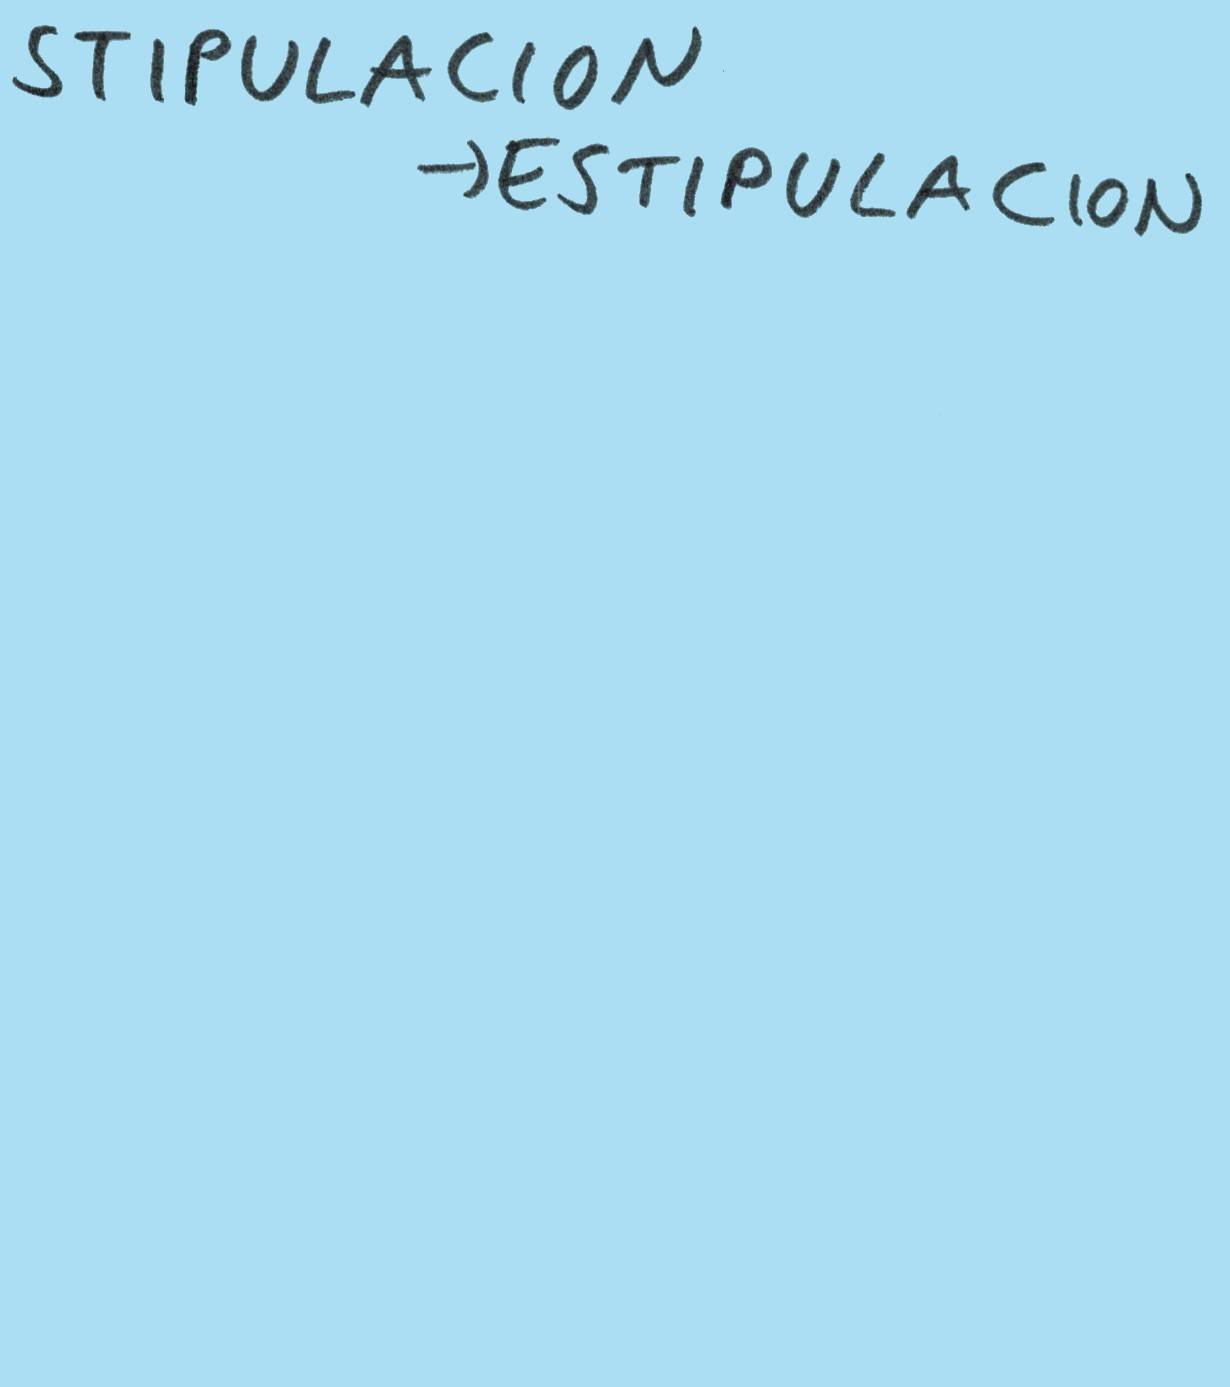 STIPULACION
→ESTIPULACION